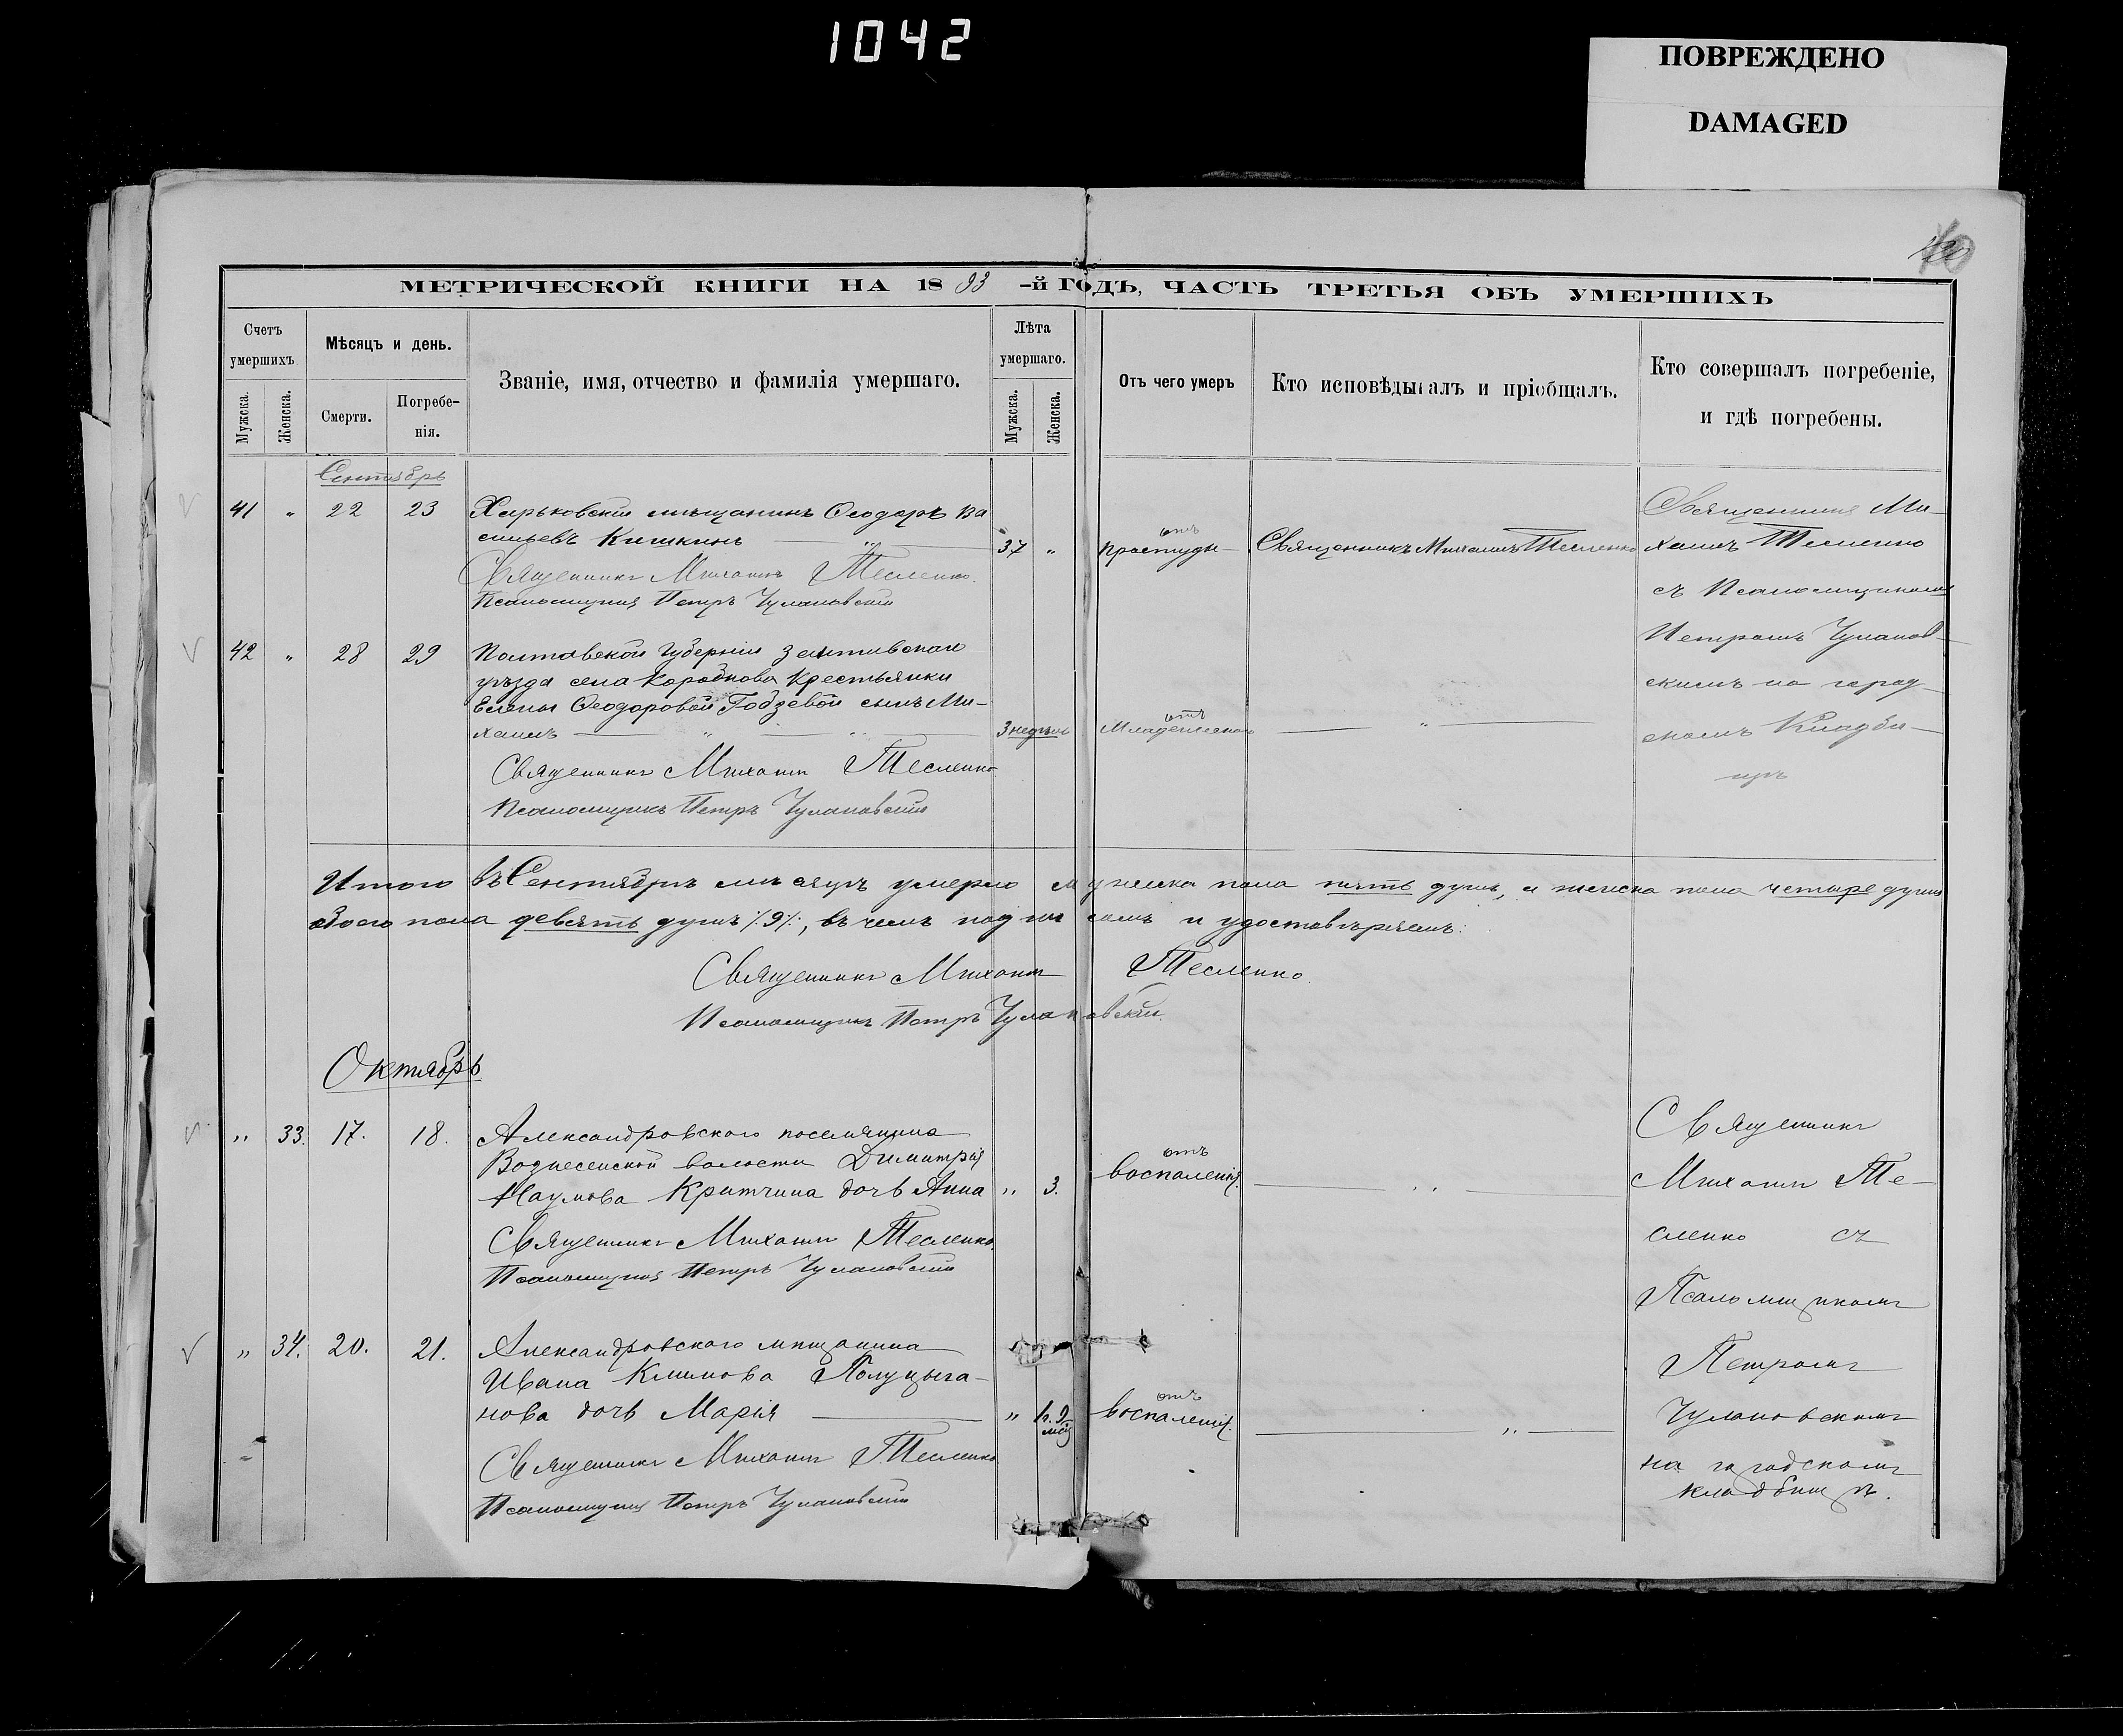 1042
ПОВРЕЖДЕНО
DAMAGED
МЕТРИЧЕСКОЙ КНИГИ НА 1893-й ГОДЪ, ЧАСТЬ ТРЕТЬЯ ОБЪ УМЕРШИХЪ
Счетъ умершихъ
Мужска.
Женска.
Мѣсяцъ и день.
Смерти.
Погребе-
нія.
Званіе, имя, отчество и фамилія умершаго.
Лѣта умершаго.
Мужска.
Женска.
Отъ чего умеръ
Кто исповѣдывалъ и пріобщалъ.
Кто совершалъ погребеніе,
и гдѣ погребены.
Сентябрь
41 " 22 23 Харьковскій мѣщанинъ Ѳеодоръ Ва
сильевъ Кишкинъ 37 " отъ простуды Священникъ Михаилъ Тесленко
Священникъ Михаилъ Тесленко.
Псаломщикъ Петръ Чулановскій
Священникъ Ми-
хаилъ Тесленко
съ Псаломщикомъ
Петромъ Чуланов-
скимъ на город-
скомъ Кладби-
щѣ
42 " 28 29 Полтавской Губерніи
уѣзда села Крестьянки
Елены Ѳеодоровой сынъ Ми-
хаилъ 3 недѣль отъ Младенческой "
Священникъ Михаилъ Тесленко
Псаломщикъ Петръ Чулановскій
Итого въ Сентябрѣ мѣсяцѣ умерло мужеска пола пять душъ, а женска пола четыре души
обоего пола девять душъ /:9:/, въ чемъ подписомъ и удостовѣряемъ:
Священникъ Михаилъ Тесленко.
Псаломщикъ Петръ Чулановскій.
Октябрь
" 33. 17. 18. Александровского поселянина
Вознесенской волости Димитрія
Наумова Критчина дочь Анна " 3. отъ воспаленія. "
Священникъ Михаилъ Тесленко.
Псаломщикъ Петръ Чулановскій
Священникъ
Михаилъ Те-
сленко съ
Псаломщикомъ
Петромъ
Чулановскимъ
на городскомъ
кладбищѣ.
" 34. 20. 21. Александровского мѣщанина
Ивана Климова Полуцыга-
нова дочь Марія " 1г. 9 мѣс отъ воспаленія. "
Священникъ Михаилъ Тесленко
Псаломщикъ Петръ Чулановскій